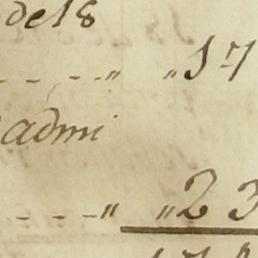 de18
- - - - " " 17
admi
- - - - " " 23